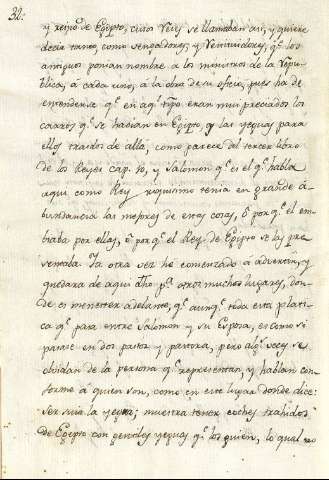 32.
y reino de Egipto, cuios Reyes se llamaban asi, y quiere
decir tanto, como vengadores, y restituidores, qe. los
antiguos ponian nombre a los ministros de la Repu-
blica, á cada uno, à la obra de su oficio, pues ha de
entenderse qe. en aql. tpo. eran mui preciados los
carros qe. se hacian en Egipto, y las yeguas para
ellos traidos de allá, como parece del tercer libro
de los Reyes cap. 10, y Salomon qe. es el qe. habla
aqui como Rey riquisimo tenia en grande á-
bundancia las mejores de estas cosas, ò por qe. el em-
biaba por ellas, ò por qe. el Rey de Egipto se las pre
sentaba. Ya otra vez he comenzado a advertir, y
quedara de aqui dho pa. otros muchos lugares, don-
de es menester adelante, qe. aunqe. toda esta plati-
ca qe. pasa entre Salomon y su Esposa, es como si
pasase en dos pastor y pastora, pero algs. veces se
olvidan de la persona qe. representan, y hablan con-
forme á quien son, como en este lugar donde dice:
ser suia la yegua; muestra tener coches trahidos
de Egipto con gentiles yeguas qe. los guien, lo qual no